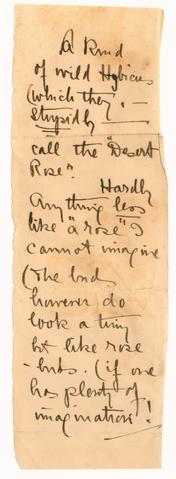 A Kind
of wild Hybicus
(which they, —
stupidly —
call the "Desert
Rose".
Hardly
Anything less
like "a rose" I
cannot imagine
(The buds
however do
look a tiny
bit like rose
-buds. (if one
has plenty of
imagination!